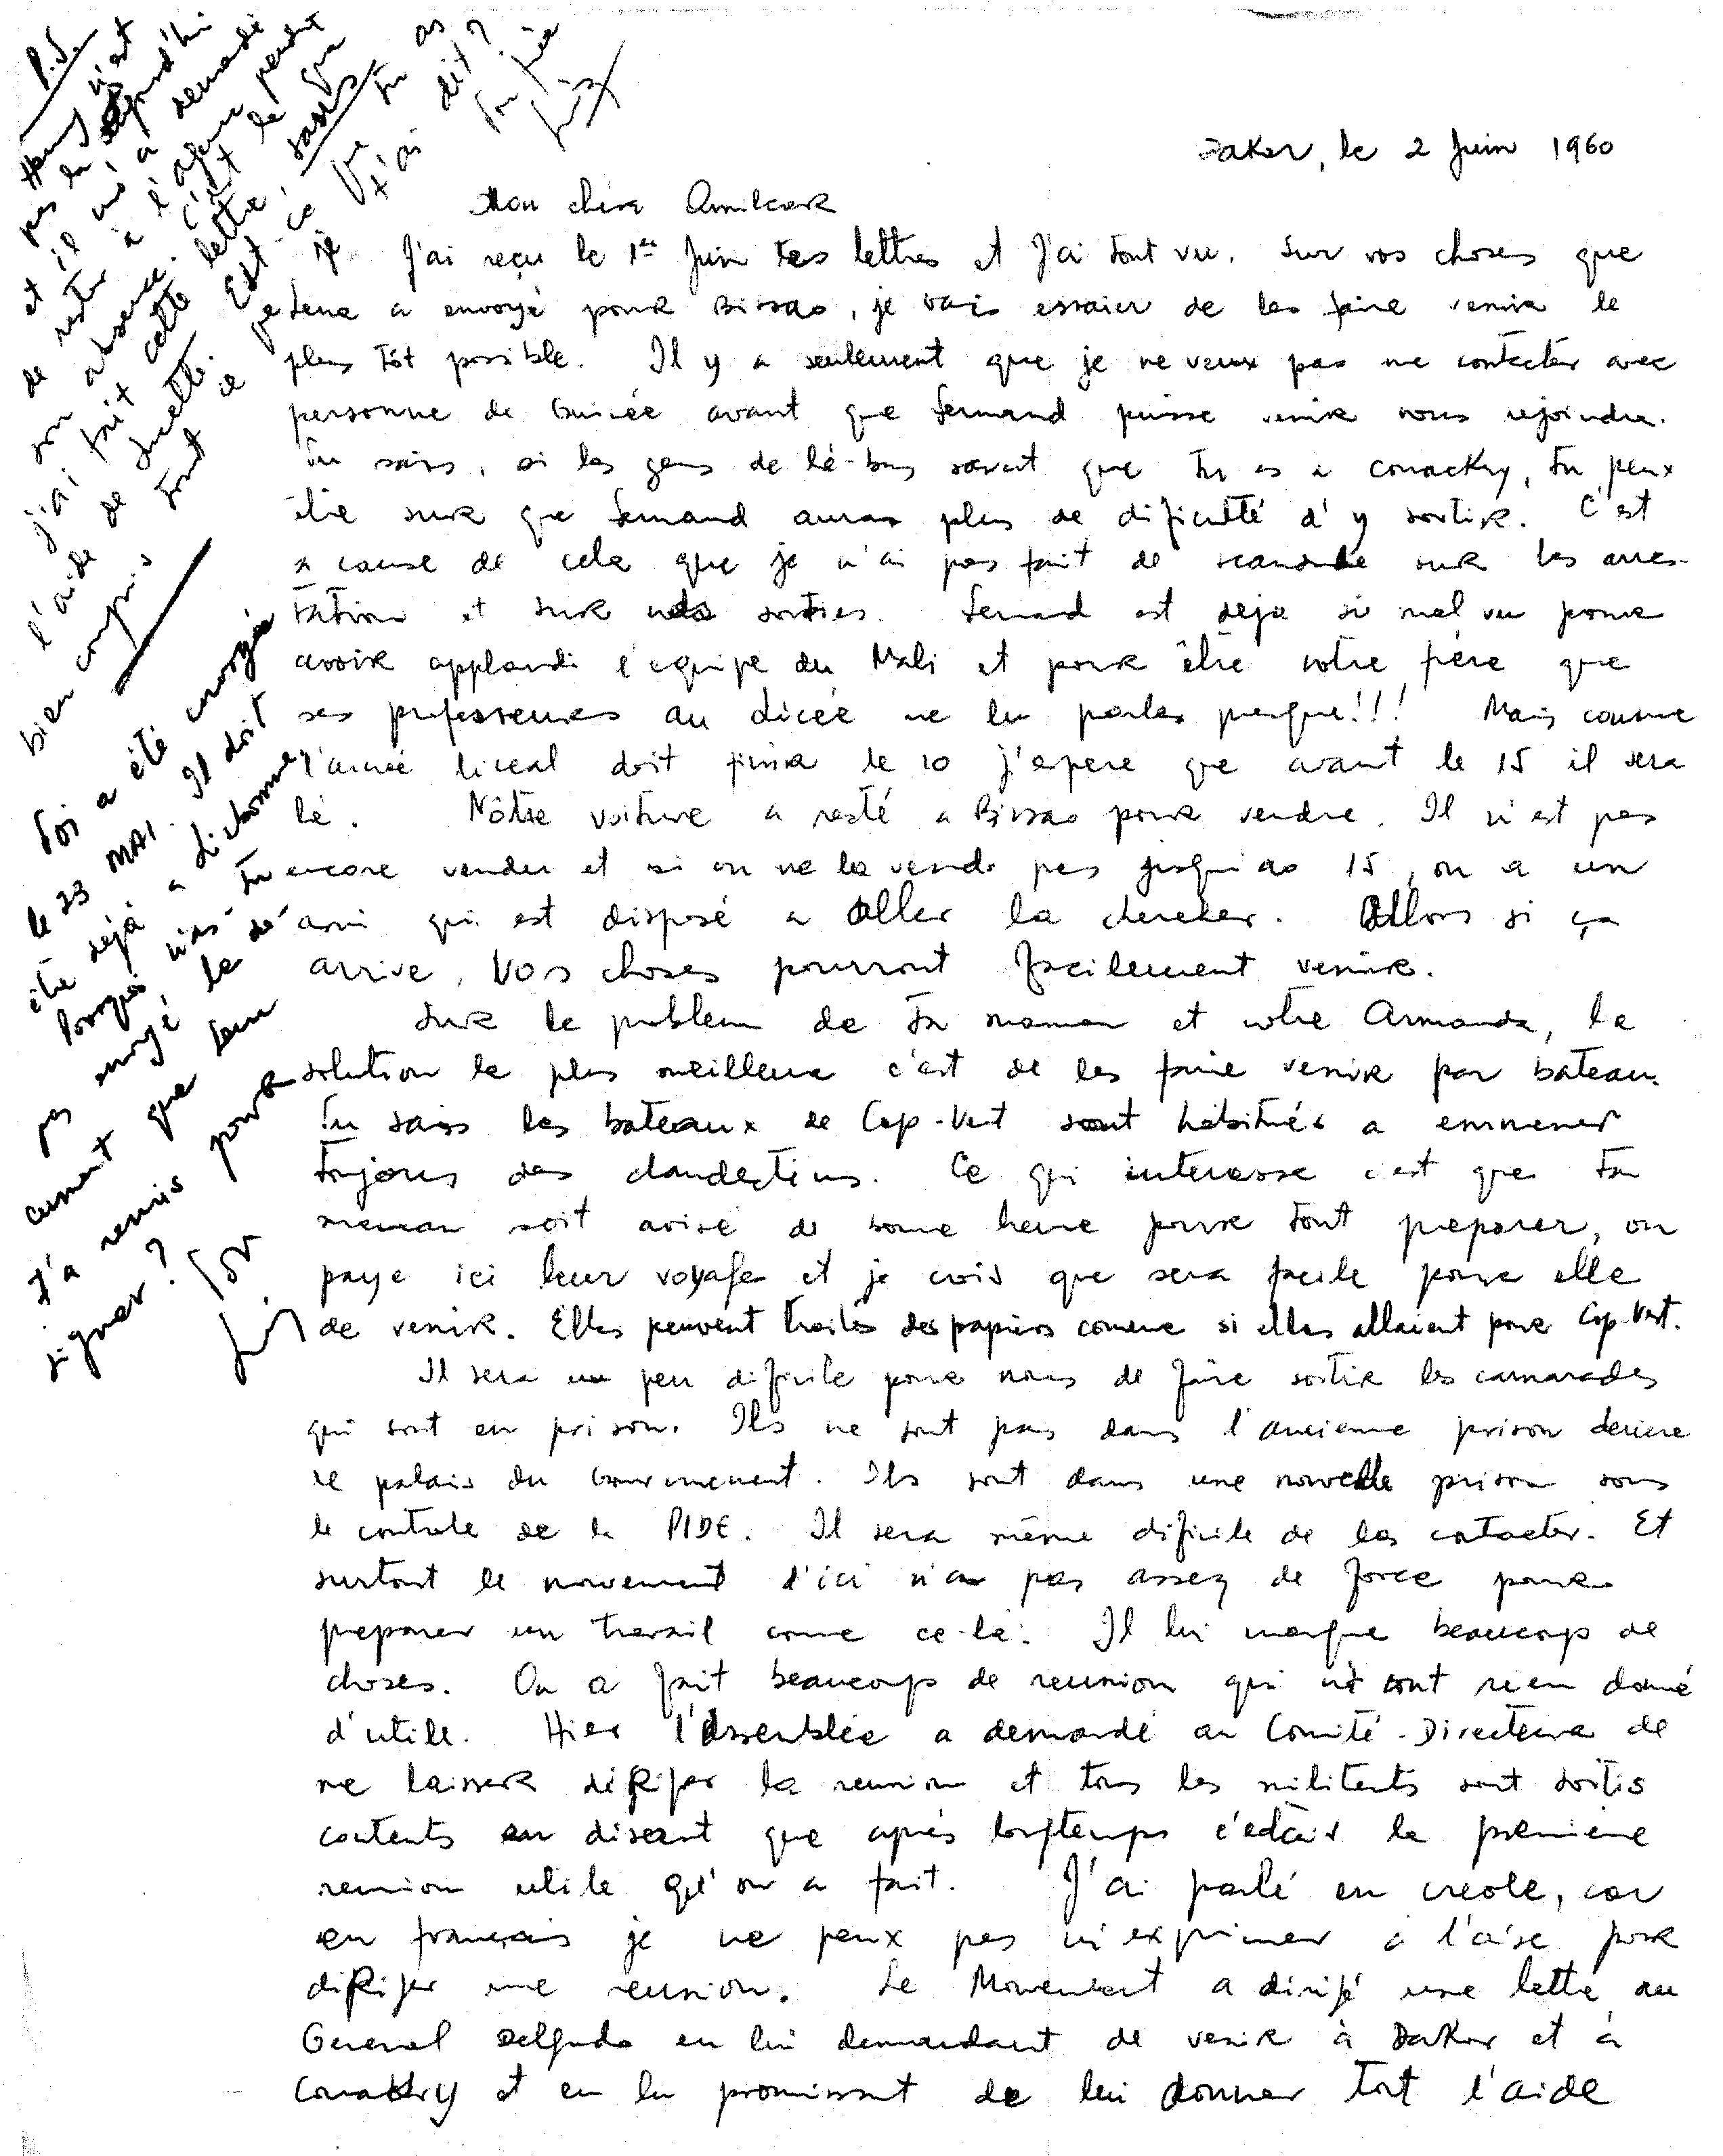 Dakar, le 2 Juin 1960
Mon cher Amilcar
J'ai reçu le 1er Juin tes lettres et J'ai tout vu. Sur vos choses que
a envoyé pour Bissao, je vais essaier de les faire venir le
plus tôt possible. Il y a seulement que je ne veux pas me contacter avec
personne de Guinée avant que Fernand puisse venir nous rejoindre.
Tu sais, si les gens de là-bas savent que tu es a conackry, tu peux
être sur que Fernand auras plus de dificulté d'y sortir. C'est
a cause de cela que je n'ai pas fait de scandale sur les arres-
tation et sur nos sorties. Fernand est deja si mal vu pour
avoir applaudi l'equipe du Mali et pour être votre frère que
ses professeures au Licée ne lui parles presque!!! Mais comme
l'année liceal doit finir le 10 j'espere que avant le 15 il sera
là. Nôtre voiture a resté a Bissao pour vendre. Il n'est pas
encore vendu et si on ne la vends pas jusqu'ao 15, on a un
ami qui est disposé a Aller la chercher. Allors si ça
arrive, vos choses pourront facilement venir.
Sur le problem de ta maman et votre Armanda, la
solution la plus meilleure c'est de les faire venir par bateau.
Tu sais les bateaux de Cap-Vert sont habitués a emmener
toujours des clandestins. Ce qui interesse c'est que ta
maman soit avisé de bonne heure pour tout preparer, on
paye ici leur voyage et je crois que sera facile pour elle
de venir. Elles peuvent traiter des papiers comme si elles allaient pour Cap-Vert.
Il sera un peu dificile pour nous de faire sortir les camarades
qui sont en prison. Ils ne sont pas dans l'ancienne prison deriere
le palais du Gouvernement. Ils sont dans une nouvelle prison sous
le controle de la PIDE. Il sera même dificile de les contacter. Et
surtout le mouvement d'ici n'a pas assez de force pour
preparer un travail come ce-là. Il lui manque beaucoup de
choses. On a fait beaucoup de reunion qui n'ont rien donné
d'utile. Hier l'Assemblée a demandé au Comité-Directeur de
me laisser diriger la reunion et tous les militants sont sortis
contents en disant que après longtemps c'était la premiere
reunion utile qu'on a fait. J'ai parlé en creole, car
en français je ne peux pas m'exprimer à l'aise pour
diriger une reunion. Le Mouvement a dirigé une lettre au
General Delgado en lui demandant de venir à Dakar et à
Conackry et en lui promissant de lui donner tout l'aide
P.S.
Henry n'est
pas là aujourd'hui
et il m'a demandé
de rester à l'agence pendant
son absence. C'est le que
j'ai fait cette lettre, sans
l'aide de Lucette. Est-ce que tu as
bien compris tout ce que je t'ai dit?
Ton frère
Luiz
Toi a été envoyé
le 23 MAI. Il doit
être déjà a Lisbonne,
lorsque n'as-tu
pas envoyé le do-
cument que Lena
t'a remis pour
signer? Ton
Luiz